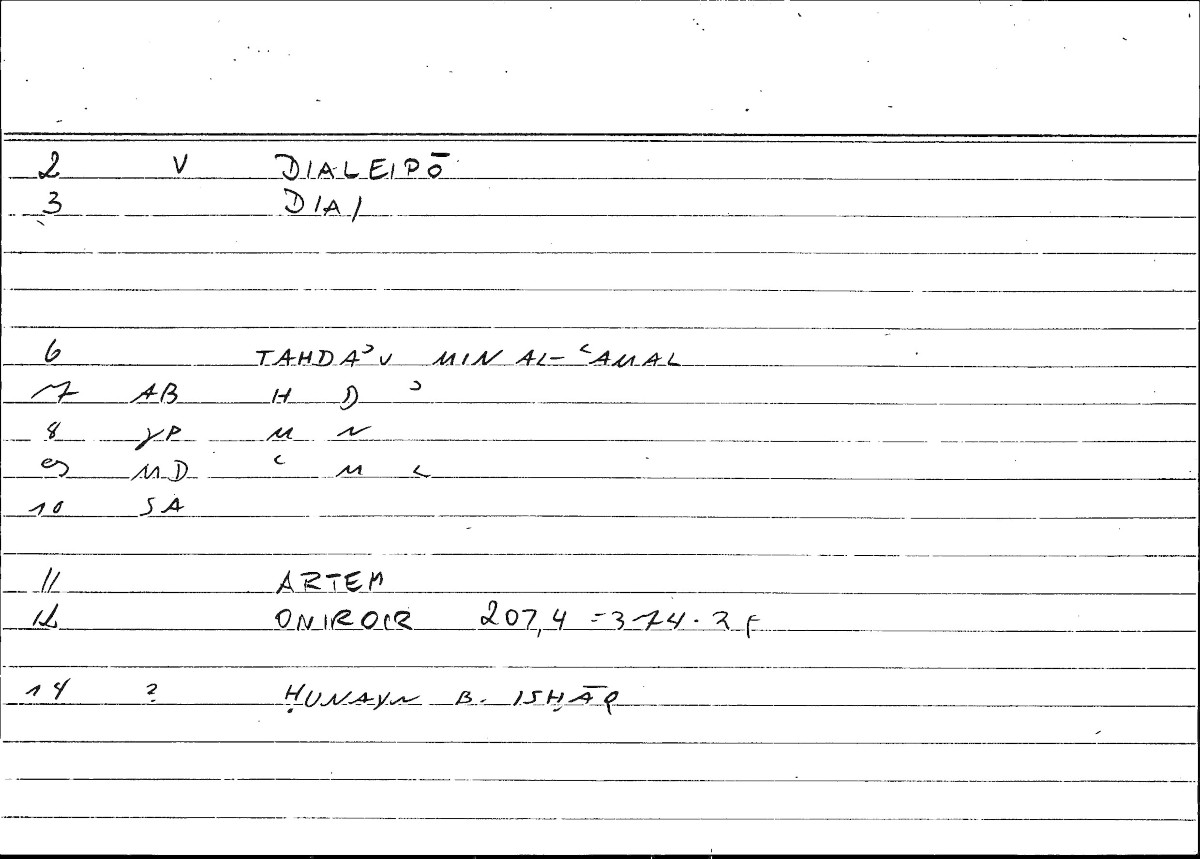 2 V DIALEIPŌ
3 DIA/
6 TAHDAʾU MIN AL-ʿAMAL
7 AB H D ʾ
8 γP M N
9 MD ʿ M L
10 SA
11 ARTEM
12 ONIROCR 207,4 = 374.2f
14 ? ḤUNAYN B. ISḤĀQ